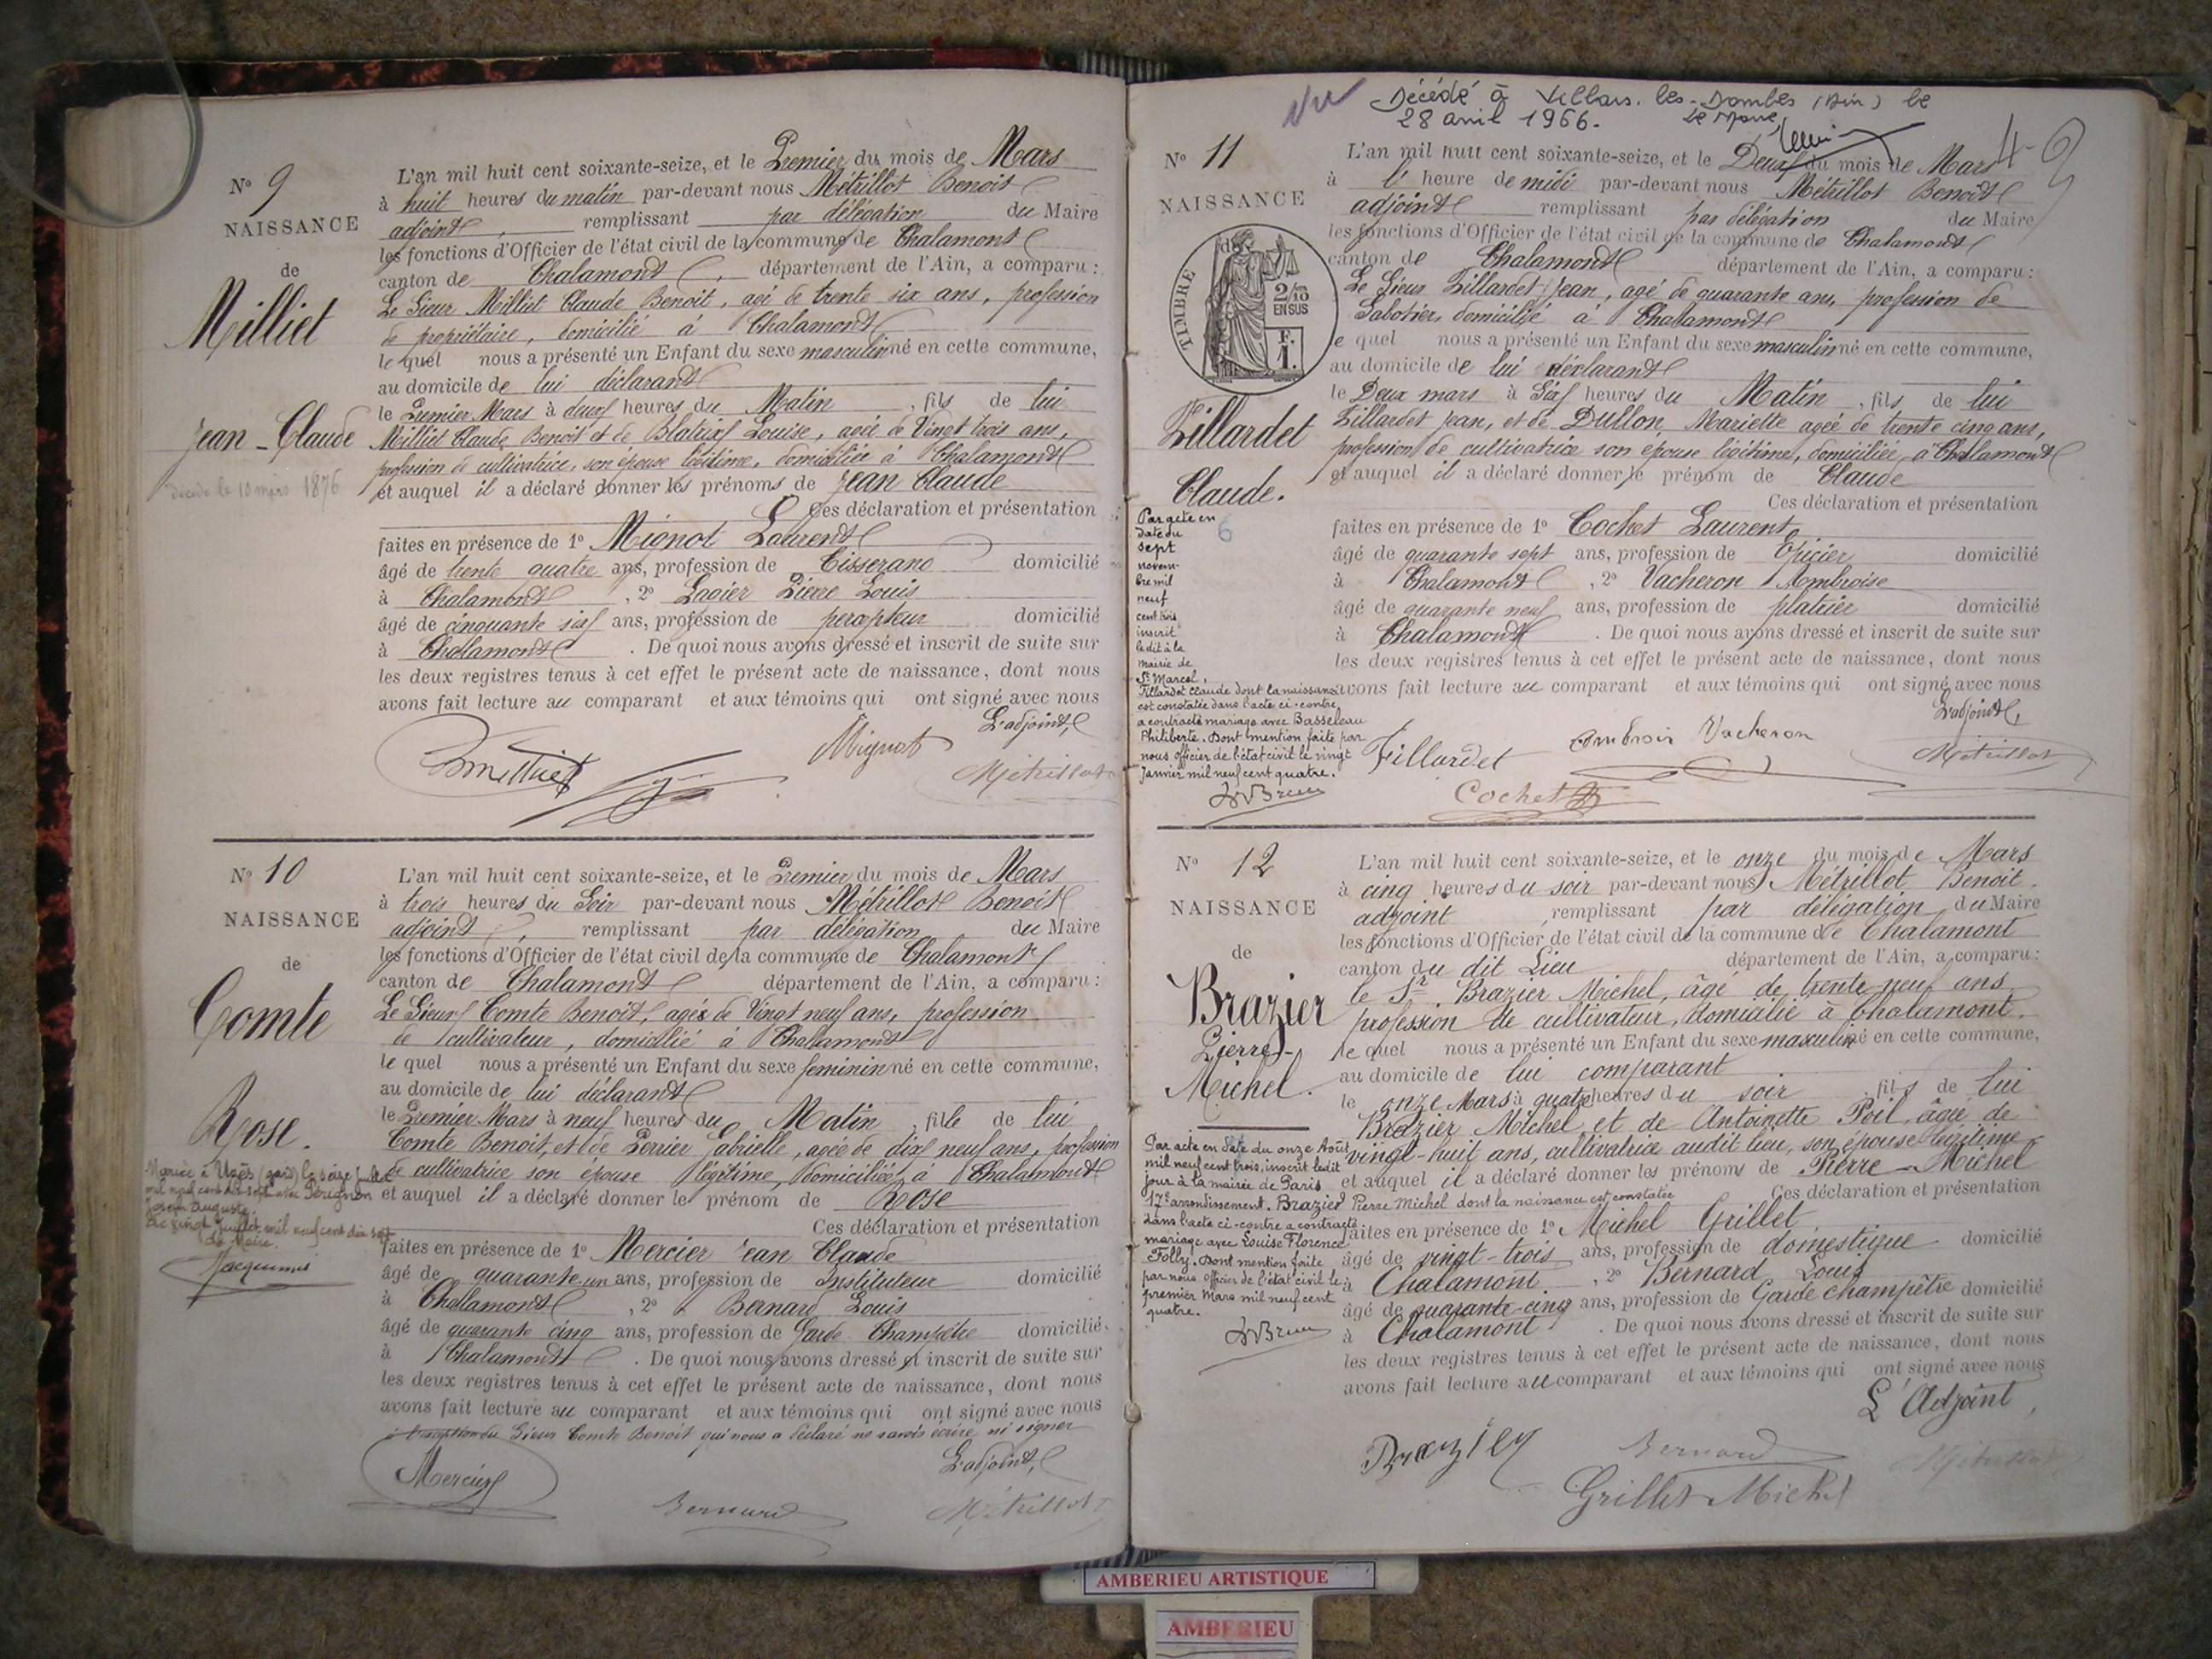 N° 9
NAISSANCE
de
Milliet
Jean-Claude
décédé le 10 mars 1876
L'an mil huit cent soixante-seize, et le Premier du mois de Mars
à huit heures du matin par-devant nous Métrillot Benoit
adjoint, remplissant par délégation du Maire
les fonctions d'Officier de l'état civil de la commune de Chalamont
canton de Chalamont, département de l'Ain, a comparu :
Le Sieur Milliet Claude Benoit, agé de trente six ans, profession
de propriétaire, domicilié à Chalamont
le quel nous a présenté un Enfant du sexe masculin né en cette commune,
au domicile de lui déclarant
le Premier Mars à deux heures du Matin, fils de lui
Milliet Claude Benoit et de Blatrix Louise, agée de Vingt trois ans,
profession de cultivatrice, son épouse légitime, domiciliée à Chalamont
et auquel il a déclaré donner les prénoms de Jean Claude
Ces déclaration et présentation
faites en présence de 1° Mignot Laurent
âgé de trente quatre ans, profession de Tisserand domicilié
à Chalamont, 2° Lagier Pierre Louis
âgé de cinquante six ans, profession de percepteur domicilié
à Chalamont. De quoi nous avons dressé et inscrit de suite sur
les deux registres tenus à cet effet le présent acte de naissance, dont nous
avons fait lecture au comparant et aux témoins qui ont signé avec nous
L'adjoint,
Mignot
Métrillot
N° 10
NAISSANCE
de
Comte
Rose.
Mariée à Uzès (gard) le seize Juillet
mil neuf cent dix-sept avec Pérignon
Joseph Auguste.
Le vingt Juillet mil neuf cent dix sept
Le Maire.
L'an mil huit cent soixante-seize, et le Premier du mois de Mars
à trois heures du Soir par-devant nous Métrillot Benoit
adjoint, remplissant par délégation du Maire
les fonctions d'Officier de l'état civil de la commune de Chalamont
canton de Chalamont département de l'Ain, a comparu :
Le Sieur Comte Benoit, agé de Vingt neuf ans, profession
de cultivateur, domicilié à Chalamont
le quel nous a présenté un Enfant du sexe feminin né en cette commune,
au domicile de lui déclarant
le Premier Mars à neuf heures du Matin, fille de lui
Comte Benoit, et de Perrier Gabrielle, agée de dix neuf ans, profession
de cultivatrice son épouse légitime, domiciliée à Chalamont
et auquel il a déclaré donner le prénom de Rose
Ces déclaration et présentation
faites en présence de 1° Mercier Jean Claude
âgé de quarante un ans, profession de Instituteur domicilié
à Chalamont, 2° Bernard Louis
âgé de quarante cinq ans, profession de Garde Champêtre domicilié
à Chalamont. De quoi nous avons dressé et inscrit de suite sur
les deux registres tenus à cet effet le présent acte de naissance, dont nous
avons fait lecture au comparant et aux témoins qui ont signé avec nous
à l'exception du Sieur Comte Benoit qui nous a déclaré ne savoir écrire ni signer
L'adjoint,
Mercier
Bernard
Métrillot
Vu
Décédé à Villars-les-Dombes (Ain) le
28 avril 1966.
Le Maire,
N° 11
NAISSANCE
de
TIMBRE
2/10
EN SUS
F.
1.
Fillardet
Claude.
6
Par acte en
date du
sept
novem-
bre mil
neuf
cent trois
inscrit
ledit à la
mairie de
St Marcel,
Fillardet Claude dont la naissance
est constatée dans l'acte ci-contre,
a contracté mariage avec Basseleau
Philiberte. Dont mention faite par
nous officier de l'état civil le vingt
Janvier mil neuf cent quatre.
L'an mil huit cent soixante-seize, et le Deux du mois de Mars
à l' heure de midi par-devant nous Métrillot Benoit
adjoint remplissant par délégation du Maire
les fonctions d'Officier de l'état civil de la commune de Chalamont
canton de Chalamont département de l'Ain, a comparu :
Le Sieur Fillardet Jean, agé de quarante ans, profession de
Sabotier, domicilié à Chalamont
le quel nous a présenté un Enfant du sexe masculin né en cette commune,
au domicile de lui déclarant
le Deux mars à Six heures du Matin, fils de lui
Fillardet Jean, et de Dullon Mariette agée de trente cinq ans,
profession de cultivatrice son épouse légitime, domiciliée à Chalamont
et auquel il a déclaré donner le prénom de Claude
Ces déclaration et présentation
faites en présence de 1° Cochet Laurent
âgé de quarante sept ans, profession de Epicier domicilié
à Chalamont, 2° Vacheron Ambroise
âgé de quarante neuf ans, profession de platrier domicilié
à Chalamont. De quoi nous avons dressé et inscrit de suite sur
les deux registres tenus à cet effet le présent acte de naissance, dont nous
avons fait lecture au comparant et aux témoins qui ont signé avec nous
L'adjoint,
Fillardet
Ambrois Vacheron
Métrillot
Cochet
N° 12
NAISSANCE
de
Brazier
Pierre-
Michel.
Par acte en date du onze Août
mil neuf cent trois, inscrit ledit
jour à la mairie de Paris
17e arrondissement. Brazier Pierre Michel dont la naissance est constatée
dans l'acte ci-contre a contracté
mariage avec Louise Florence
Folly. Dont mention faite
par nous officier de l'état civil le
premier Mars mil neuf cent
quatre.
L'an mil huit cent soixante-seize, et le onze du mois de Mars
à cinq heures du soir par-devant nous Métrillot Benoit
adjoint remplissant par délégation du Maire
les fonctions d'Officier de l'état civil de la commune de Chalamont
canton du dit Lieu département de l'Ain, a comparu :
le Sr Brazier Michel, âgé de trente-neuf ans
profession de cultivateur, domicilié à Chalamont.
le quel nous a présenté un Enfant du sexe masculin né en cette commune,
au domicile de lui comparant
le onze Mars à quatre heures du soir fils de lui
Brazier Michel et de Antoinette Poil, âgée de
vingt-huit ans, cultivatrice audit lieu, son épouse légitime
et auquel il a déclaré donner les prénoms de Pierre-Michel
Ces déclaration et présentation
faites en présence de 1° Michel Grillet
âgé de vingt-trois ans, profession de domestique domicilié
à Chalamont, 2° Bernard Louis
âgé de quarante-cinq ans, profession de Garde champêtre domicilié
à Chalamont. De quoi nous avons dressé et inscrit de suite sur
les deux registres tenus à cet effet le présent acte de naissance, dont nous
avons fait lecture au comparant et aux témoins qui ont signé avec nous
L'Adjoint,
Brazier
Bernard
Métrillot
Grillet Michel
AMBERIEU ARTISTIQUE
AMBERIEU